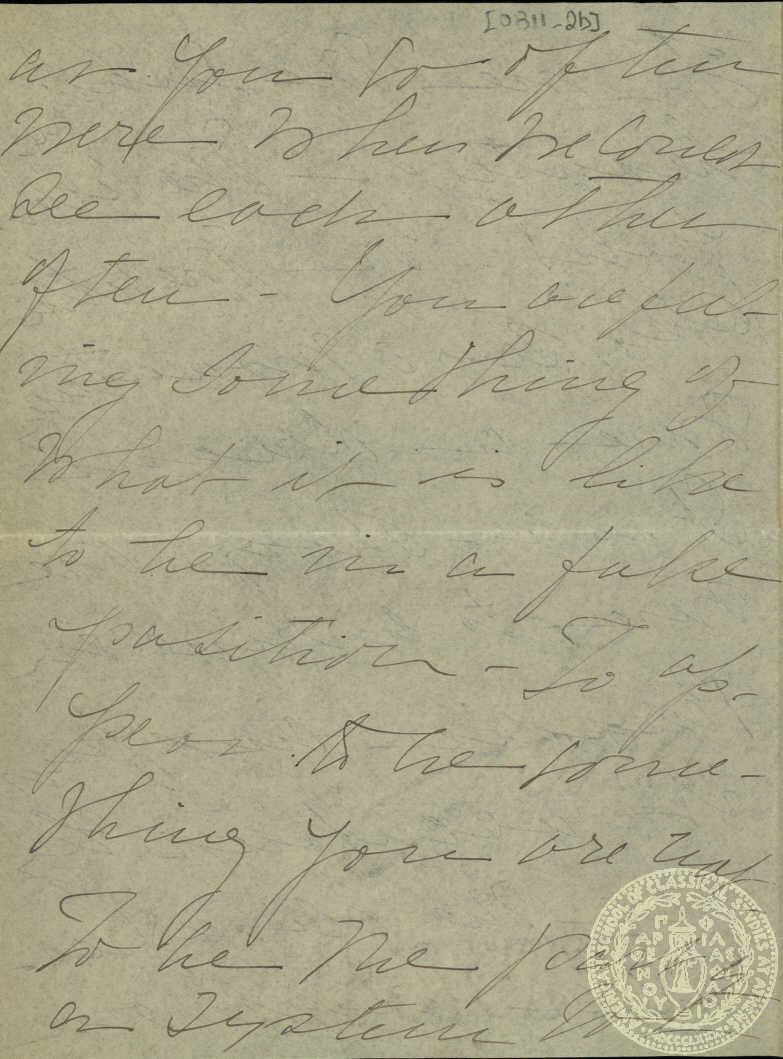 [0311-2b]
as you so often
were when we could
see each other
often - You are feel-
ing something of
what it is like
to be in a false
position - To ap-
pear to be some-
thing you are not
To be the
a system